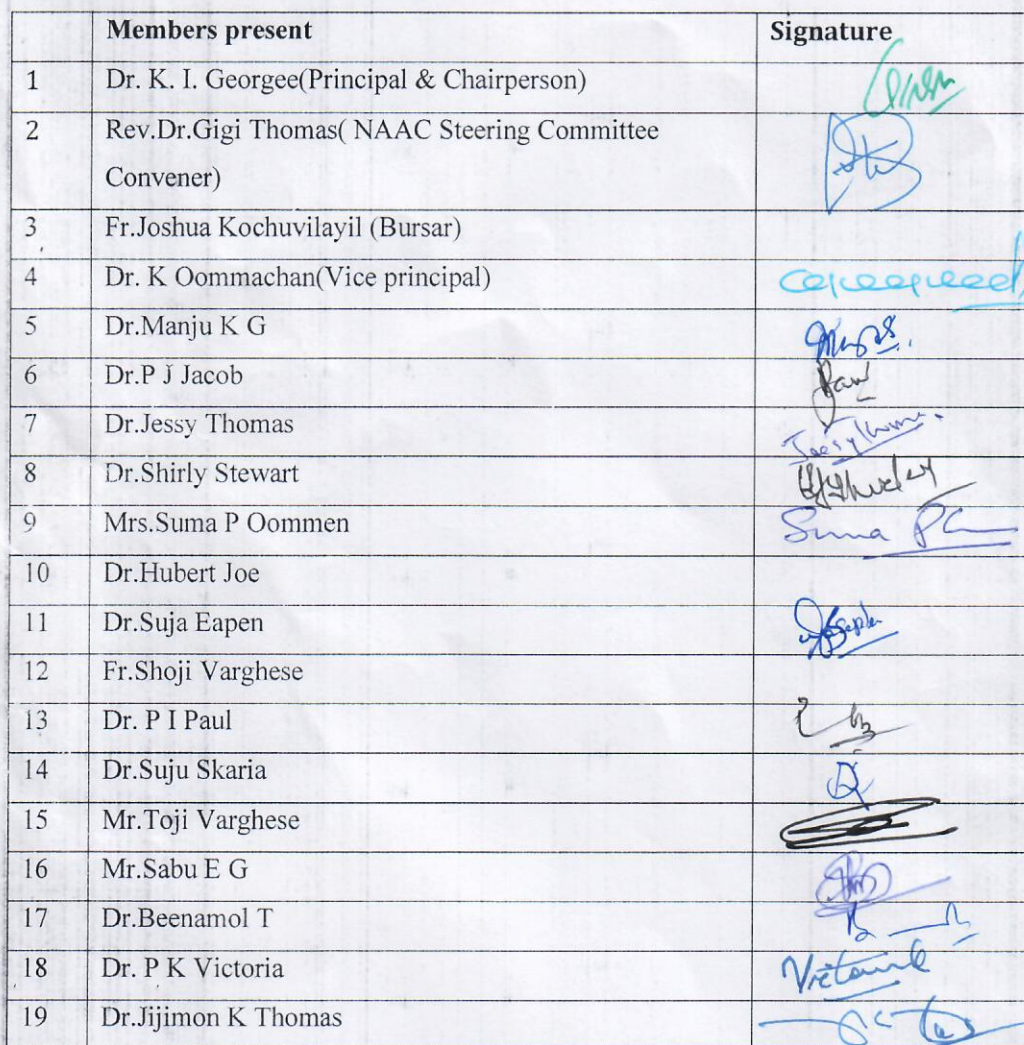 Members present Signature
1 Dr. K. I. Georgee(Principal & Chairperson)
2 Rev.Dr.Gigi Thomas( NAAC Steering Committee
Convener)
3 Fr.Joshua Kochuvilayil (Bursar)
4 Dr. K Oommachan(Vice principal)
5 Dr.Manju K G
6 Dr.P J Jacob
7 Dr.Jessy Thomas
8 Dr.Shirly Stewart
9 Mrs.Suma P Oommen Suma P
10 Dr.Hubert Joe
11 Dr.Suja Eapen
12 Fr.Shoji Varghese
13 Dr. P I Paul
14 Dr.Suju Skaria
15 Mr.Toji Varghese
16 Mr.Sabu E G
17 Dr.Beenamol T
18 Dr. P K Victoria
19 Dr.Jijimon K Thomas